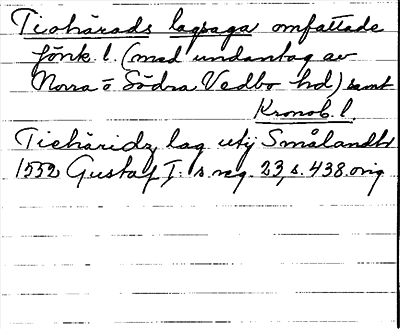 Tiohärads lagsaga omfattade
Jönk. l. (med undantag av
Norra o Södra Vedbo hd) samt
Kronob. l.
Tiehäridz lag utij Smålandh
1552 Gustaf I. s reg. 23, s. 438 orig